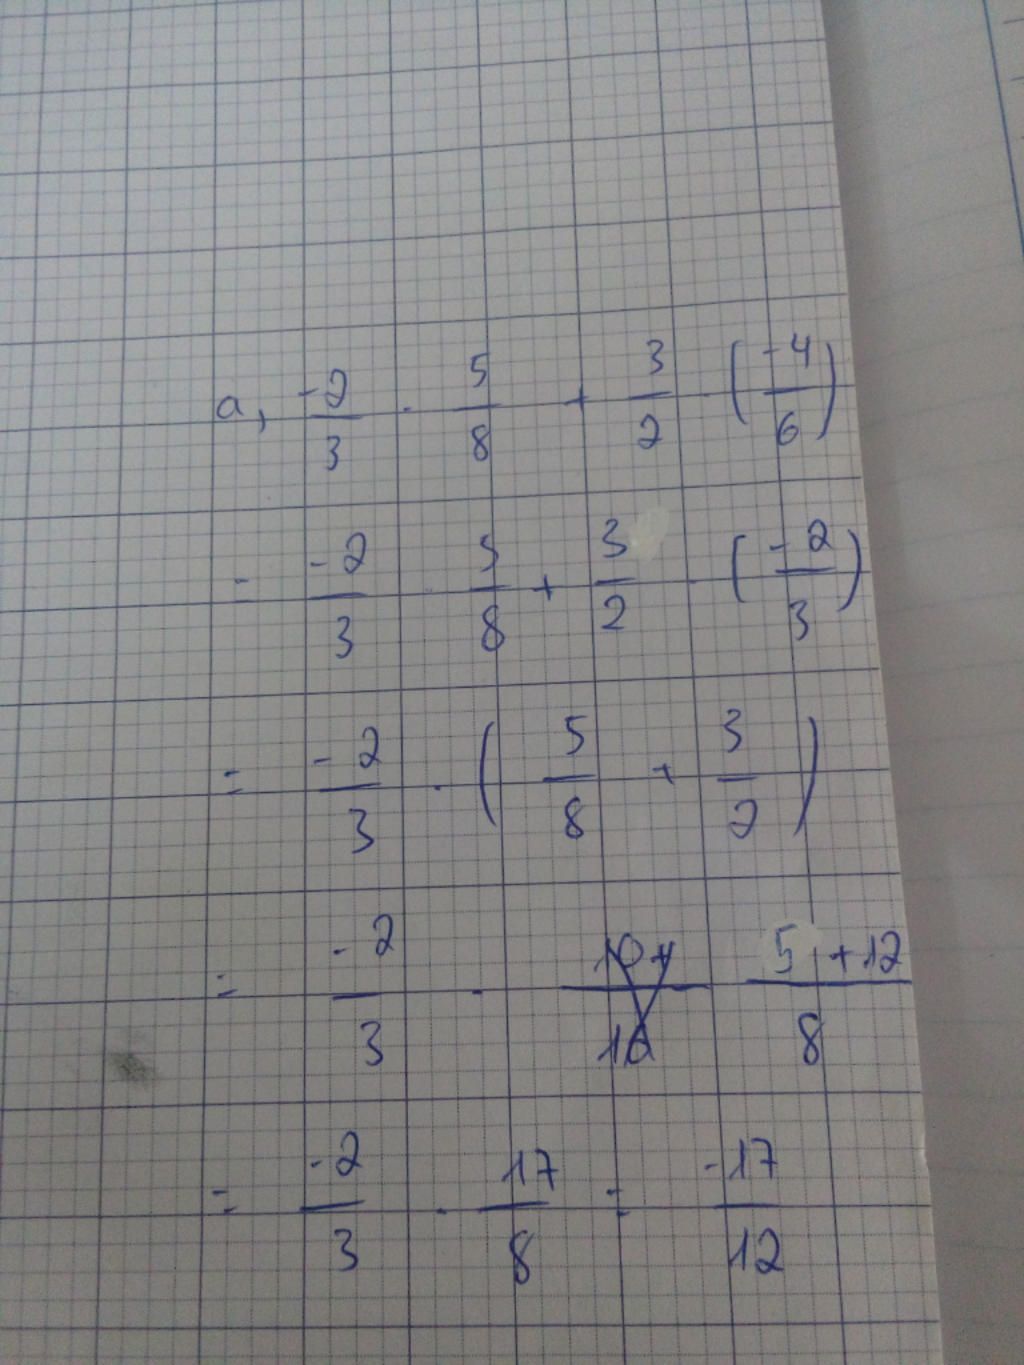 a, -2/3 . 5/8 + 3/2 . (-4/6)
= -2/3 . 5/8 + 3/2 . (-2/3)
= -2/3 . (5/8 + 3/2)
= -2/3 . 5+12/8
= -2/3 . 17/8 = -17/12